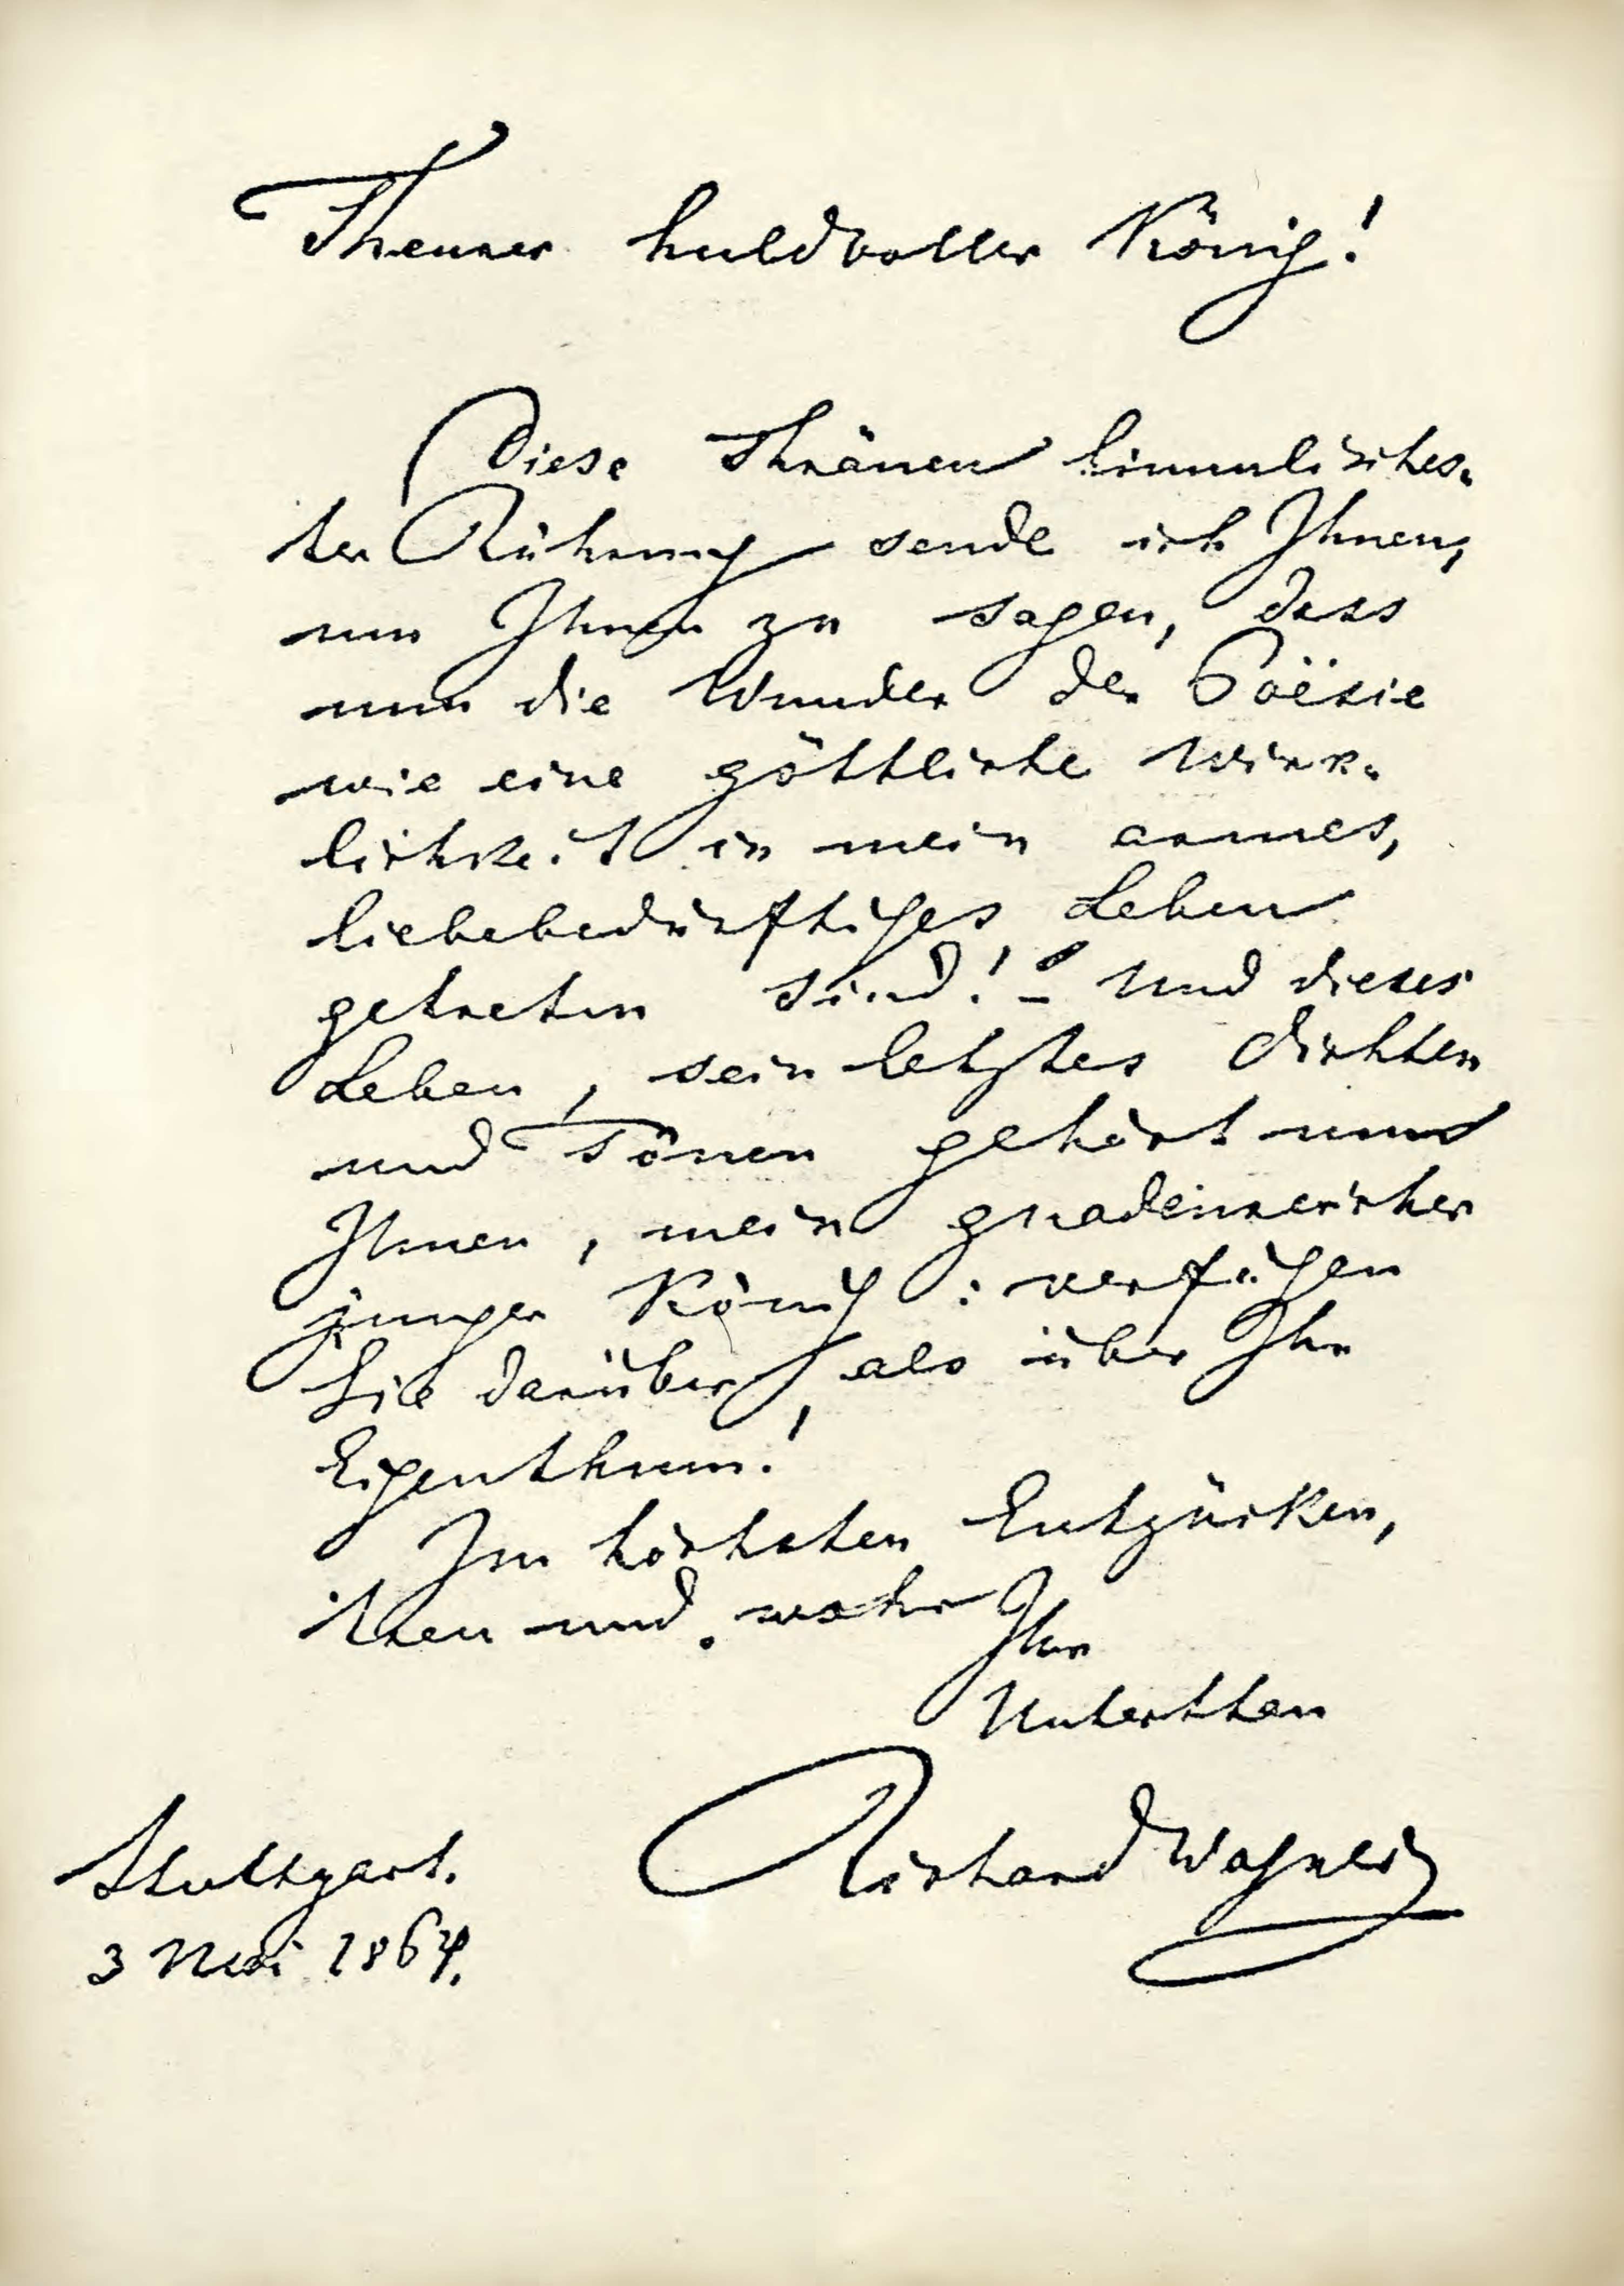 Theurer huldvoller König!
Diese Thränen himmlisches-
ter Rührung sende ich Ihnen,
um Ihnen zu sagen, dass
nun die Wunder der Poësie
wie eine göttliche Wirk-
lichkeit in mein armes,
liebebedürftiges Leben
getreten sind! – Und dieses
Leben, sein letztes Dichten
und Tönen gehört nun
Ihnen, mein gnadenreicher
junger König: verfügen
Sie darüber, als über Ihr
Eigenthum!
Im höchsten Entzücken,
treu und wahr Ihr
Unterthan
Richard Wagner
Stuttgart.
3 Mai 1864.